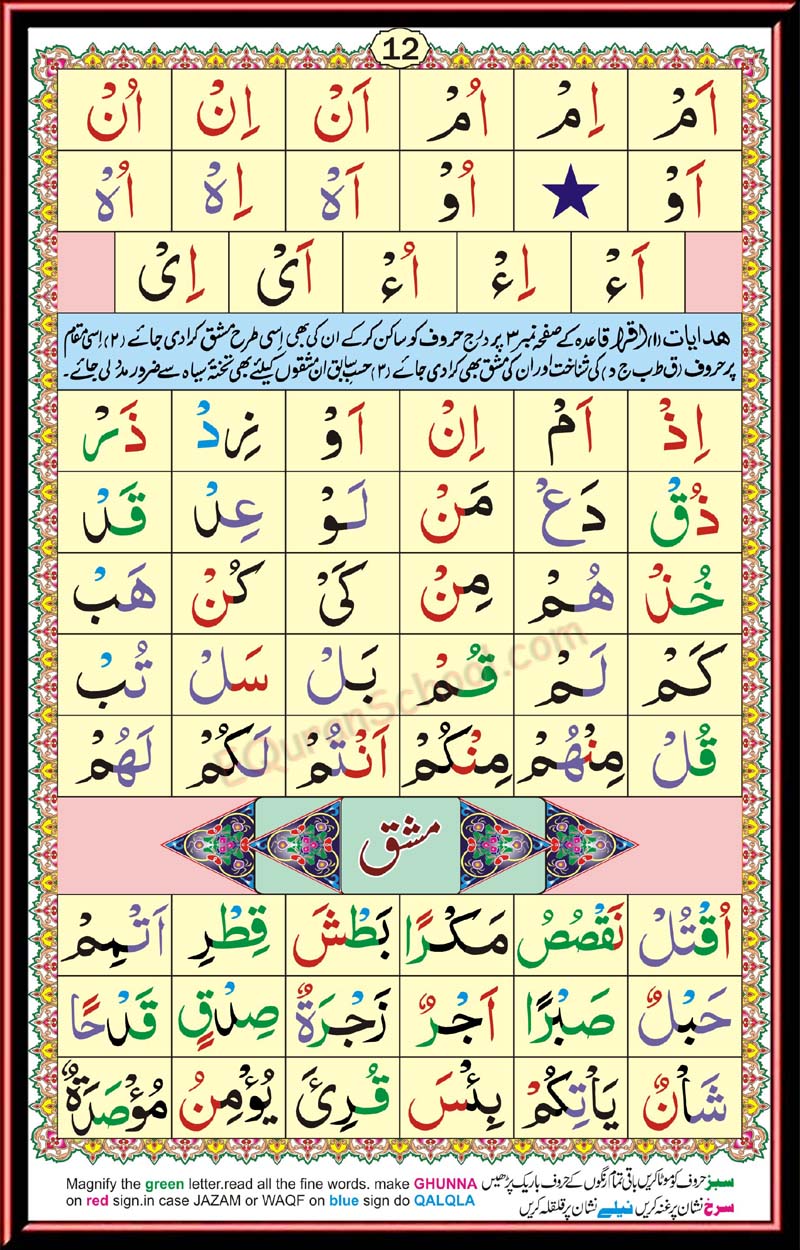 12
اَمْ اِمْ اُمْ اَنْ اِنْ اُنْ
اَوْ اُوْ اَهْ اِهْ اُهْ
اَءْ اِءْ اُءْ اَیْ اِیْ
هدایات (۱) اقرا قاعدہ کے صفحہ نمبر ۳ پر درج حروف کو ساکن کر کے ان کی بھی اِسی طرح مشق کرا دی جائے (۲) اِسی مقام
پر حروف (ق ط ب ج د) کی شناخت اور ان کی مشق بھی کرا دی جائے (۳) حسبِ سابق ان مشقوں کیلئے بھی تختۂ سیاہ سے ضرور مدد لی جائے۔
اِذْ اَمْ اِنْ اَوْ نِرِدْ ذَرْ
ذُقْ دَعْ مَنْ لَوْ عِدْ قَدْ
خُذْ هُمْ مِنْ كَیْ كُنْ هَبْ
كَمْ لَمْ قُمْ بَلْ سَلْ تُبْ
قُلْ مِنْهُمْ مِنْكُمْ اَنْتُمْ لَكُمْ لَهُمْ
EQuranSchool.com
مشق
اُقْتُلْ نَقْصُصُ مَكْرًا بَطْشَ قِطْرِ اَتْمِمْ
حَبْلٌ صَبْرًا اَجْرٌ زَجْرَةٌ صِدْقٍ قَدْحًا
شَأْنٌ يَأْتِكُمْ بِئْسَ قُرِئَ يُؤْمِنُ مُؤْصَدَةٌ
Magnify the green letter.read all the fine words. make GHUNNA سبز حروف کو موٹا کریں باقی تمام رنگوں کے حروف باریک پڑھیں
on red sign.in case JAZAM or WAQF on blue sign do QALQLA سرخ نشان پر غنہ کریں نیلے نشان پر قلقلہ کریں